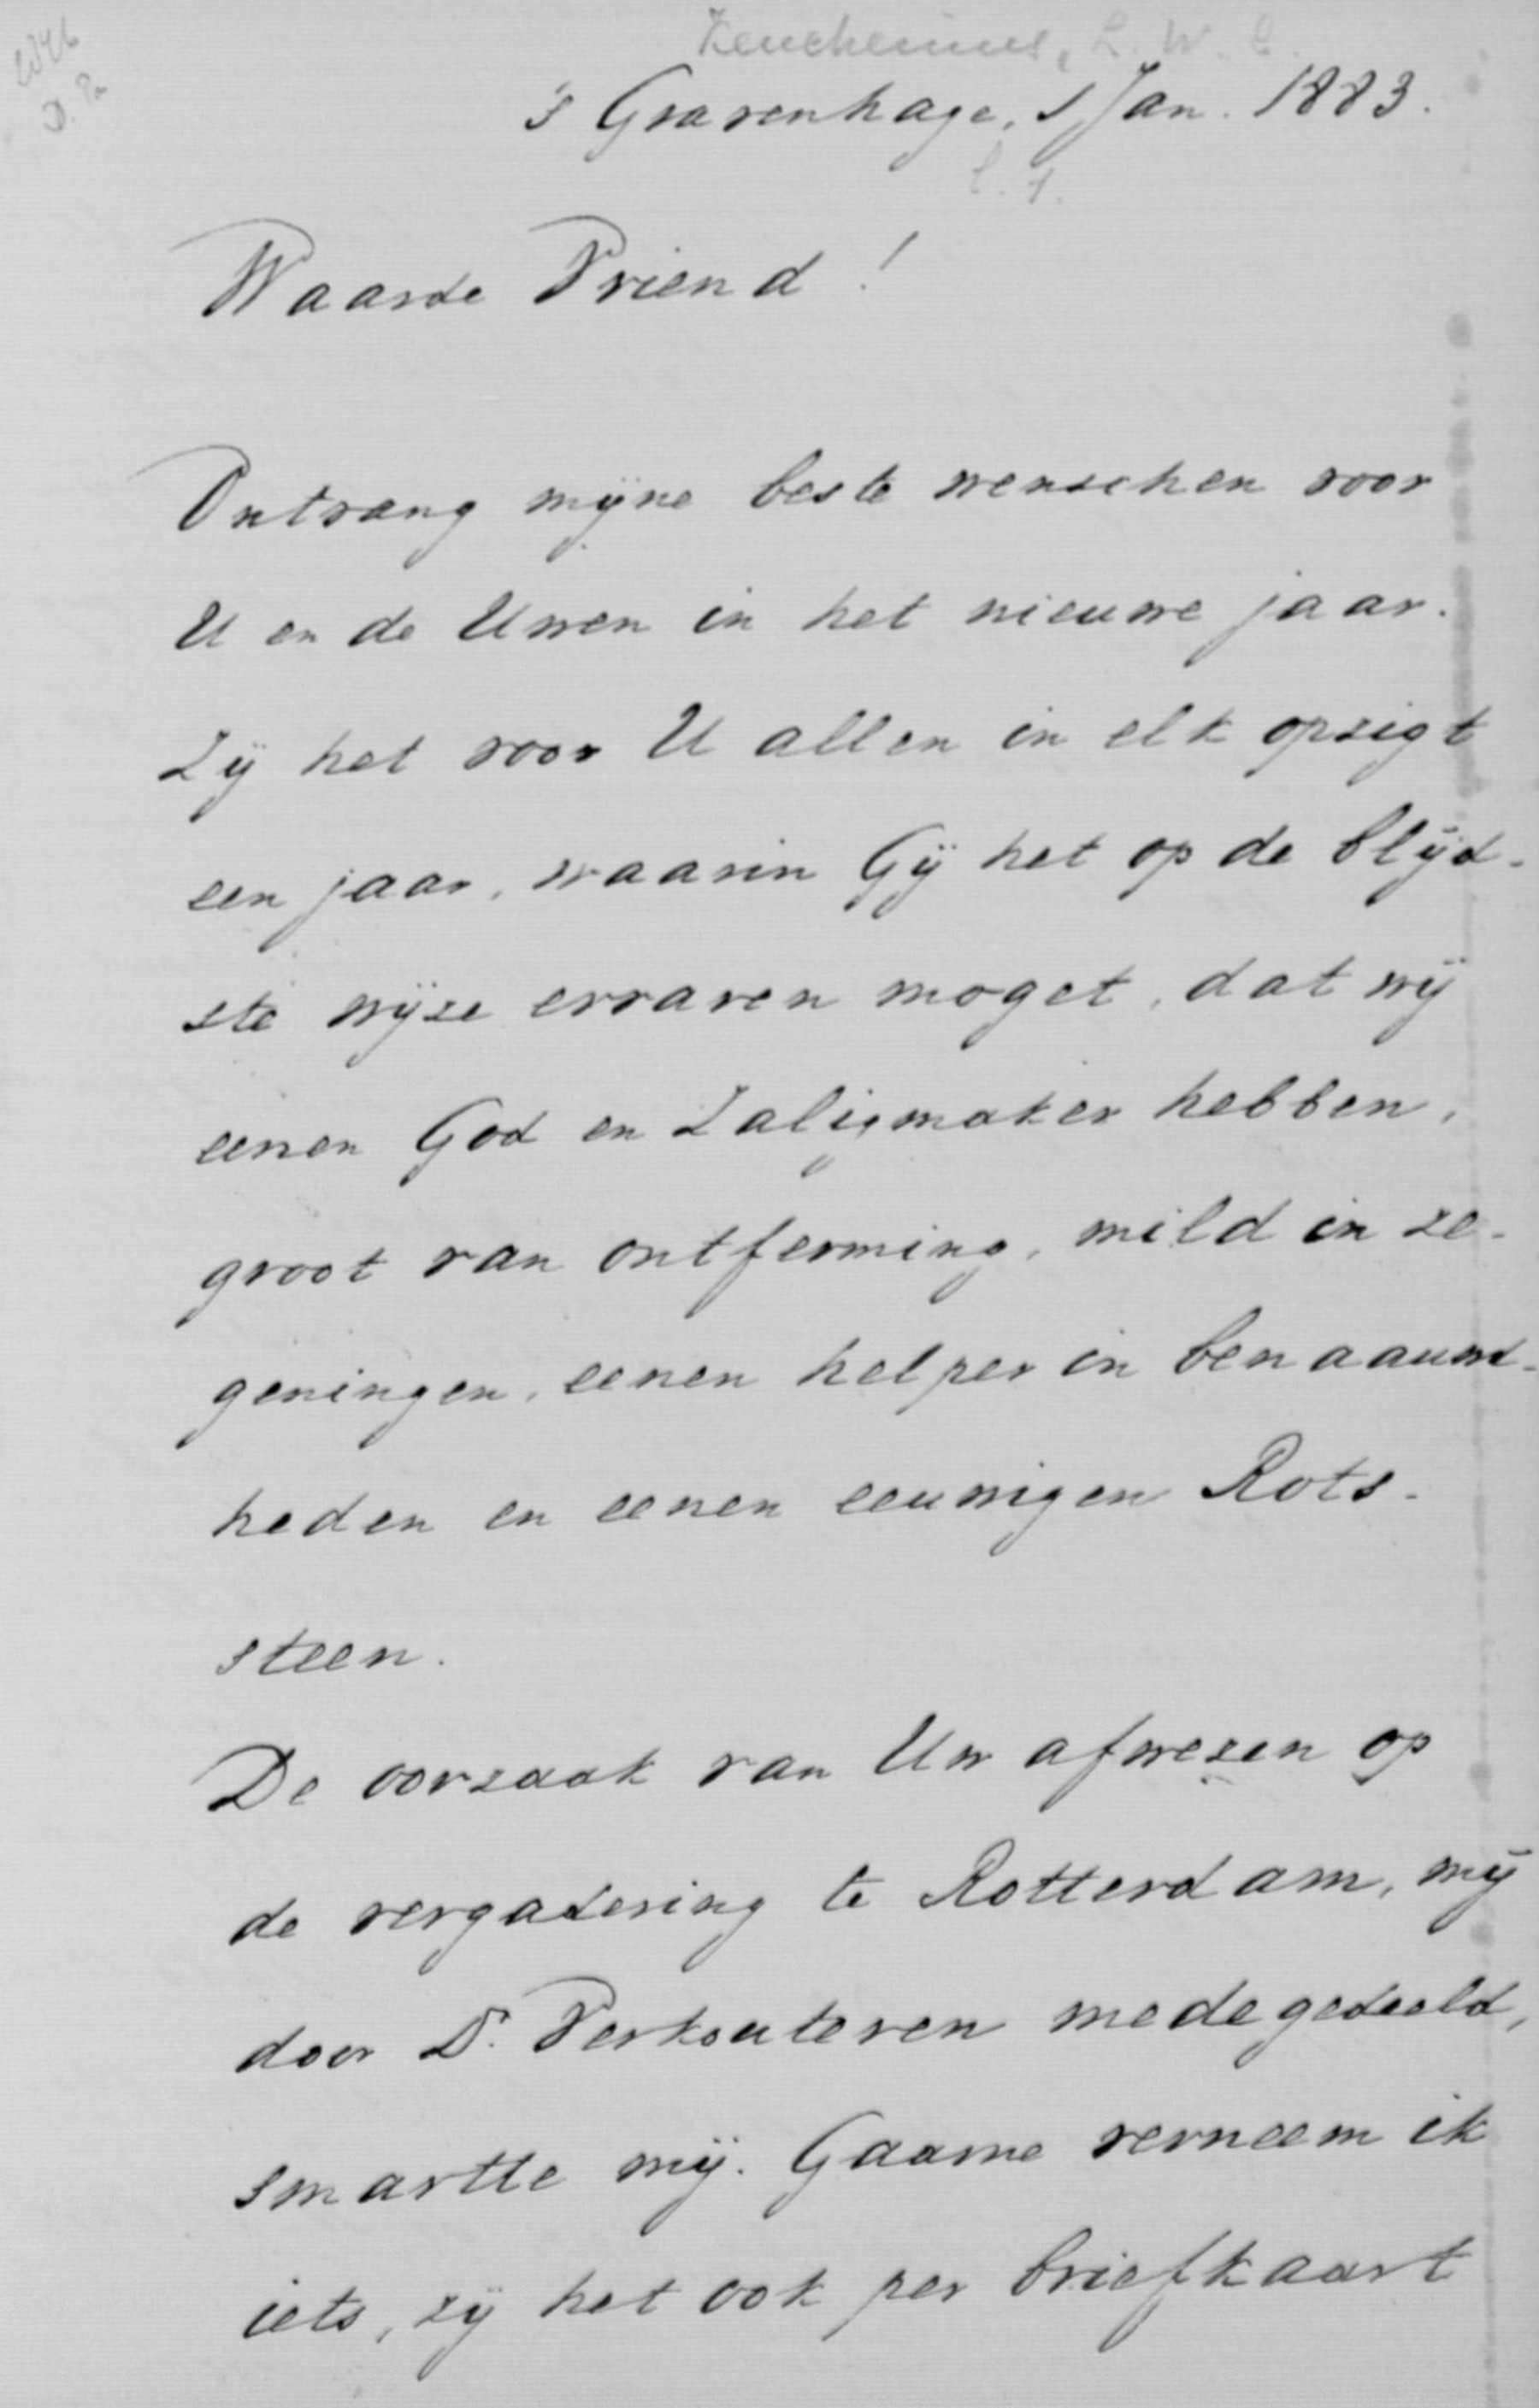 Keuchenius, L. W. C.
's Gravenhage, 1 Jan. 1883.
Waarde Vriend!
Ontvang mijne beste wenschen voor
U en de Uwen in het nieuwe jaar.
Zij het voor U allen in elk opzigt
een jaar, waarin Gij het op de blijd-
ste wijze ervaren moget, dat wij
eenen God en Zaligmaker hebben,
groot van ontferming, mild in ze-
geningen, eenen helper in benaauwd-
heden en eenen eeuwigen Rots-
steen.
De oorzaak van Uw afwezen op
de vergadering te Rotterdam, mij
door Dr. Verkouteren medegedeeld,
smartte mij. Gaarne verneem ik
iets, zij het ook per briefkaart